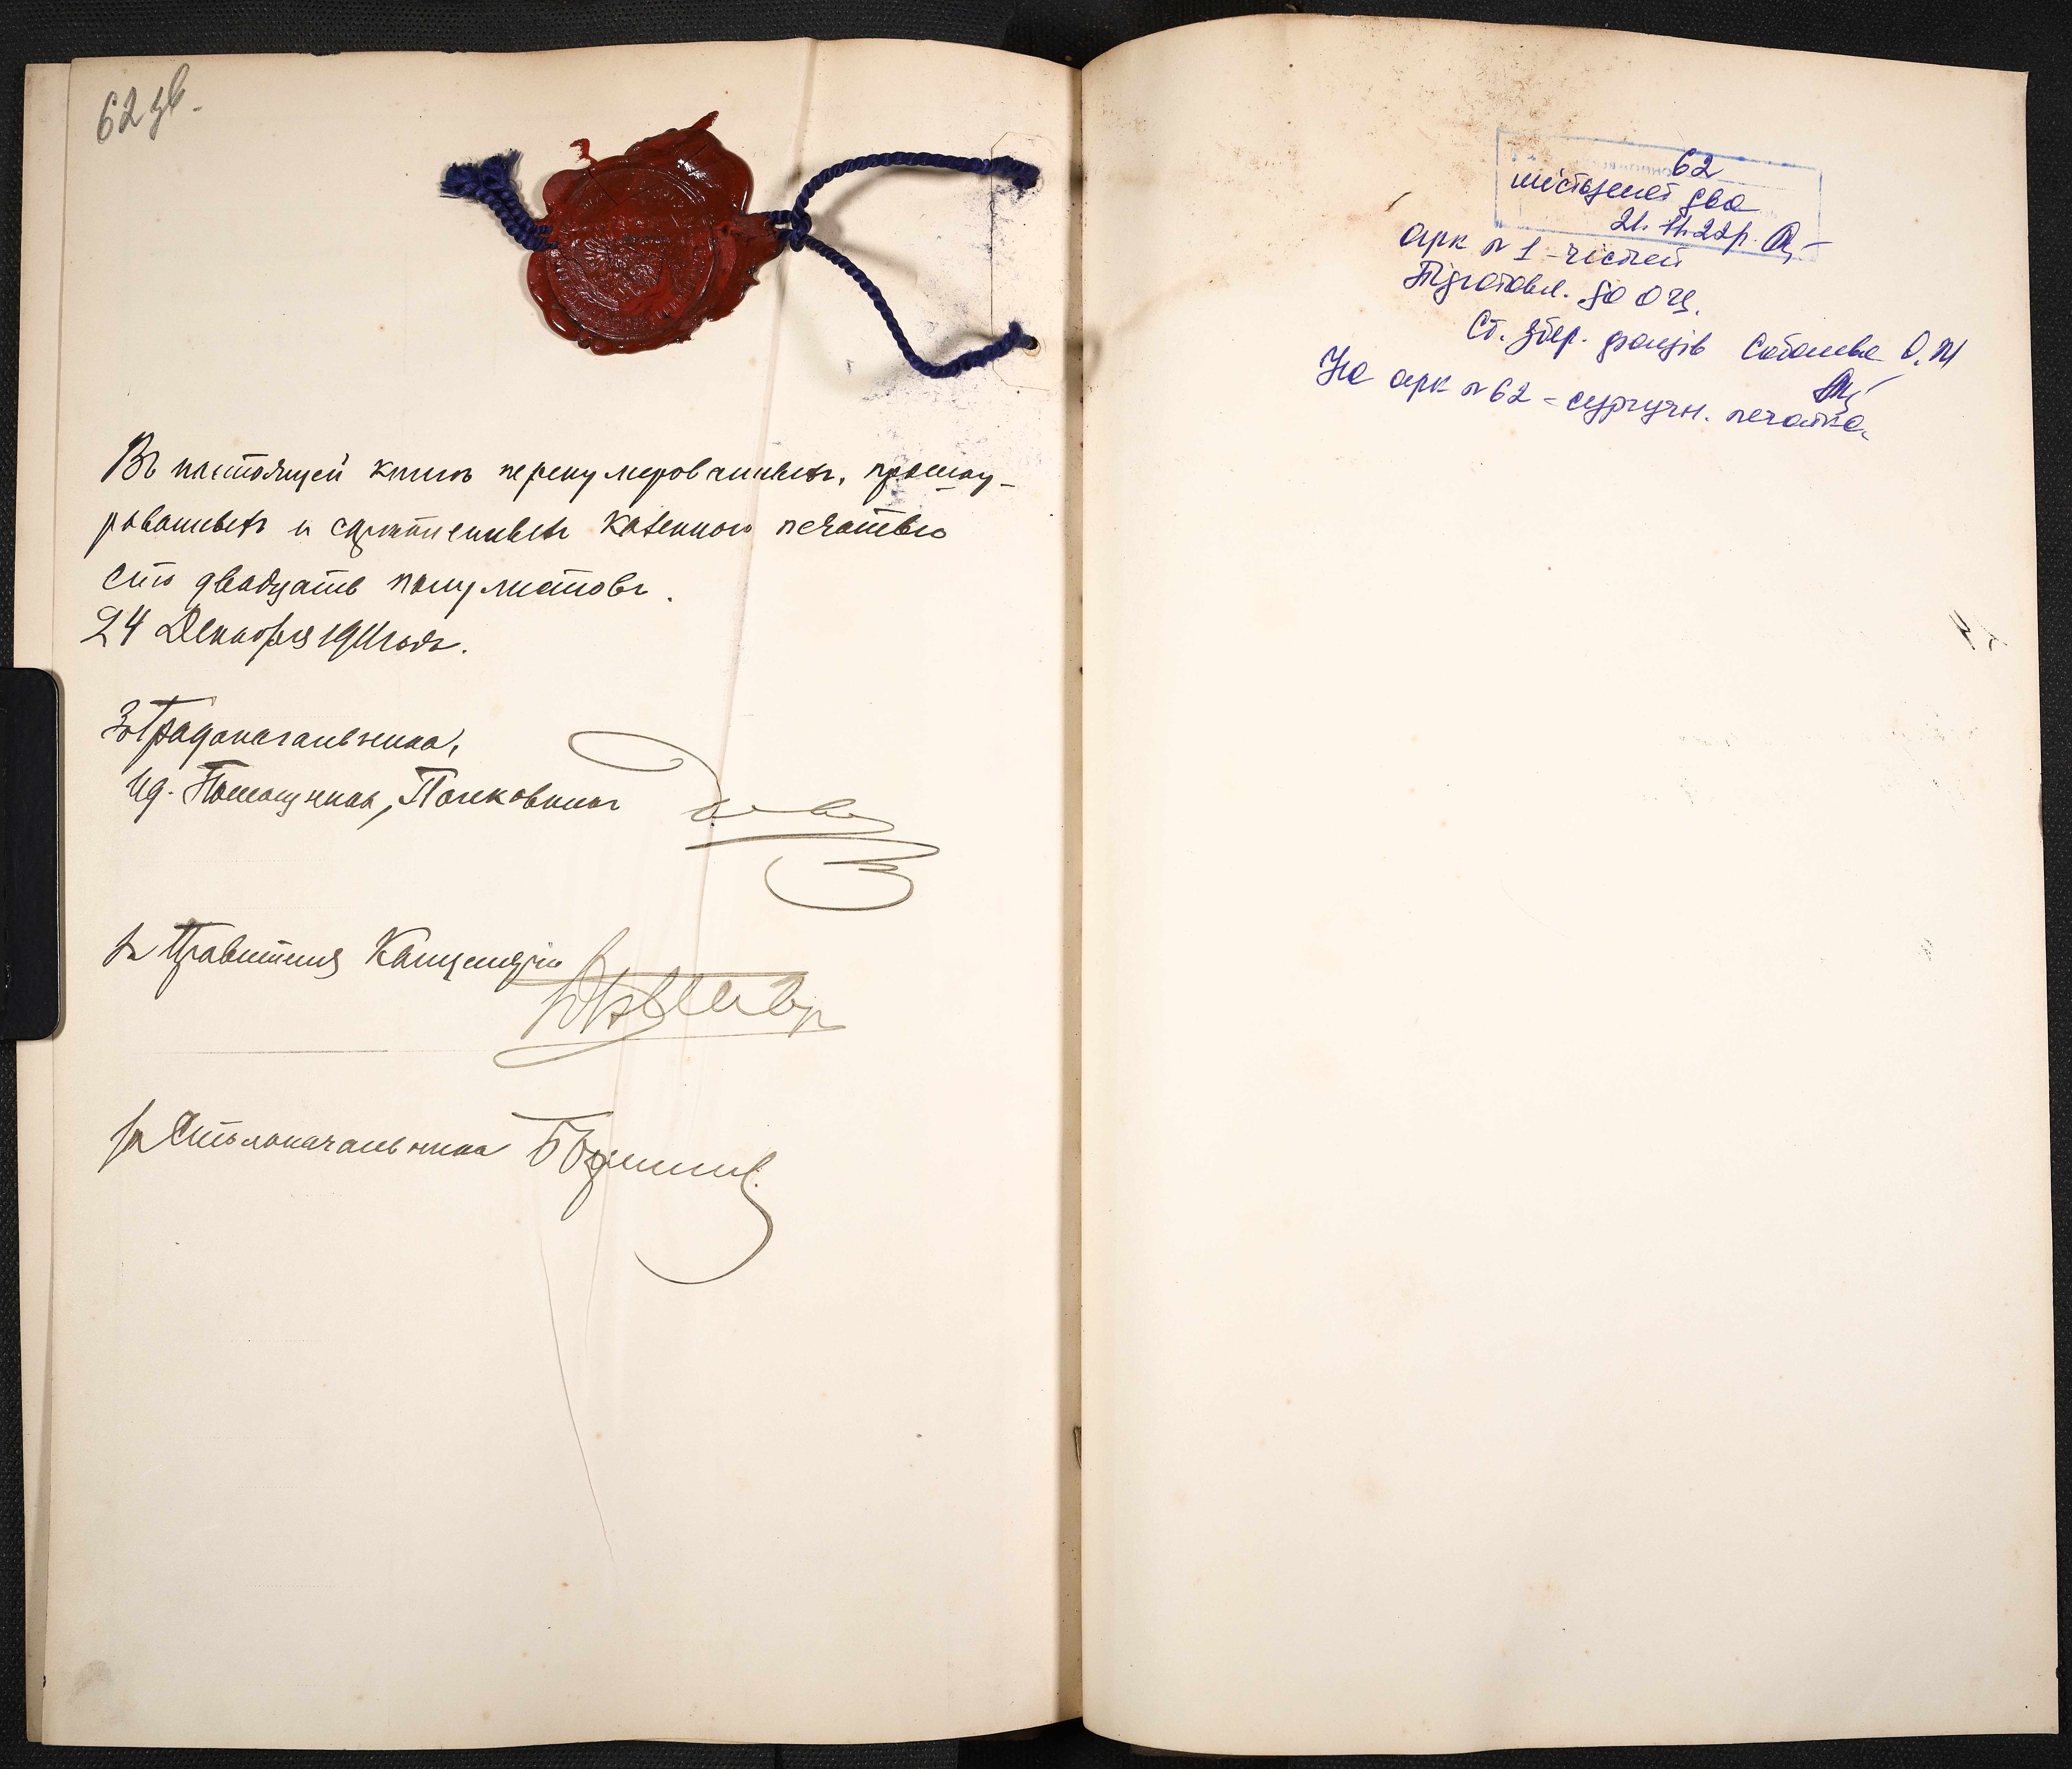 62 зв.
Въ настоящей книгѣ перенумерованныхъ, прошну-
рованныхъ и скрѣпленныхъ казенною печатью
сто двадцать полулистовъ.
24 Декабря 1911 года.
За Градоначальника,
Ид. Помощника, Полковникъ
За Правителя Канцеляріи
За Столоначальника
62
шістдесят два
21. 11. 22р.
арк № 1 - чистий
Підготовл. до оц.
Ст. збер. фондів О. М
На арк № 62 - сургучн. печатка